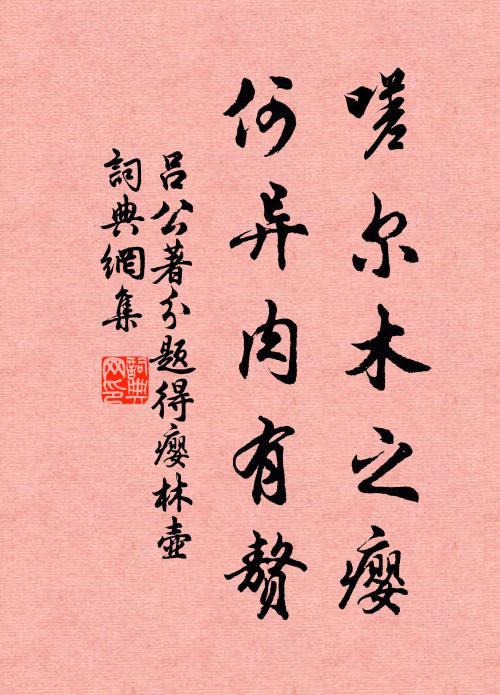 嗟尔木之瘿
何异肉有赘
吕公著分题得瘿林壶
词典網集
詞典
网印